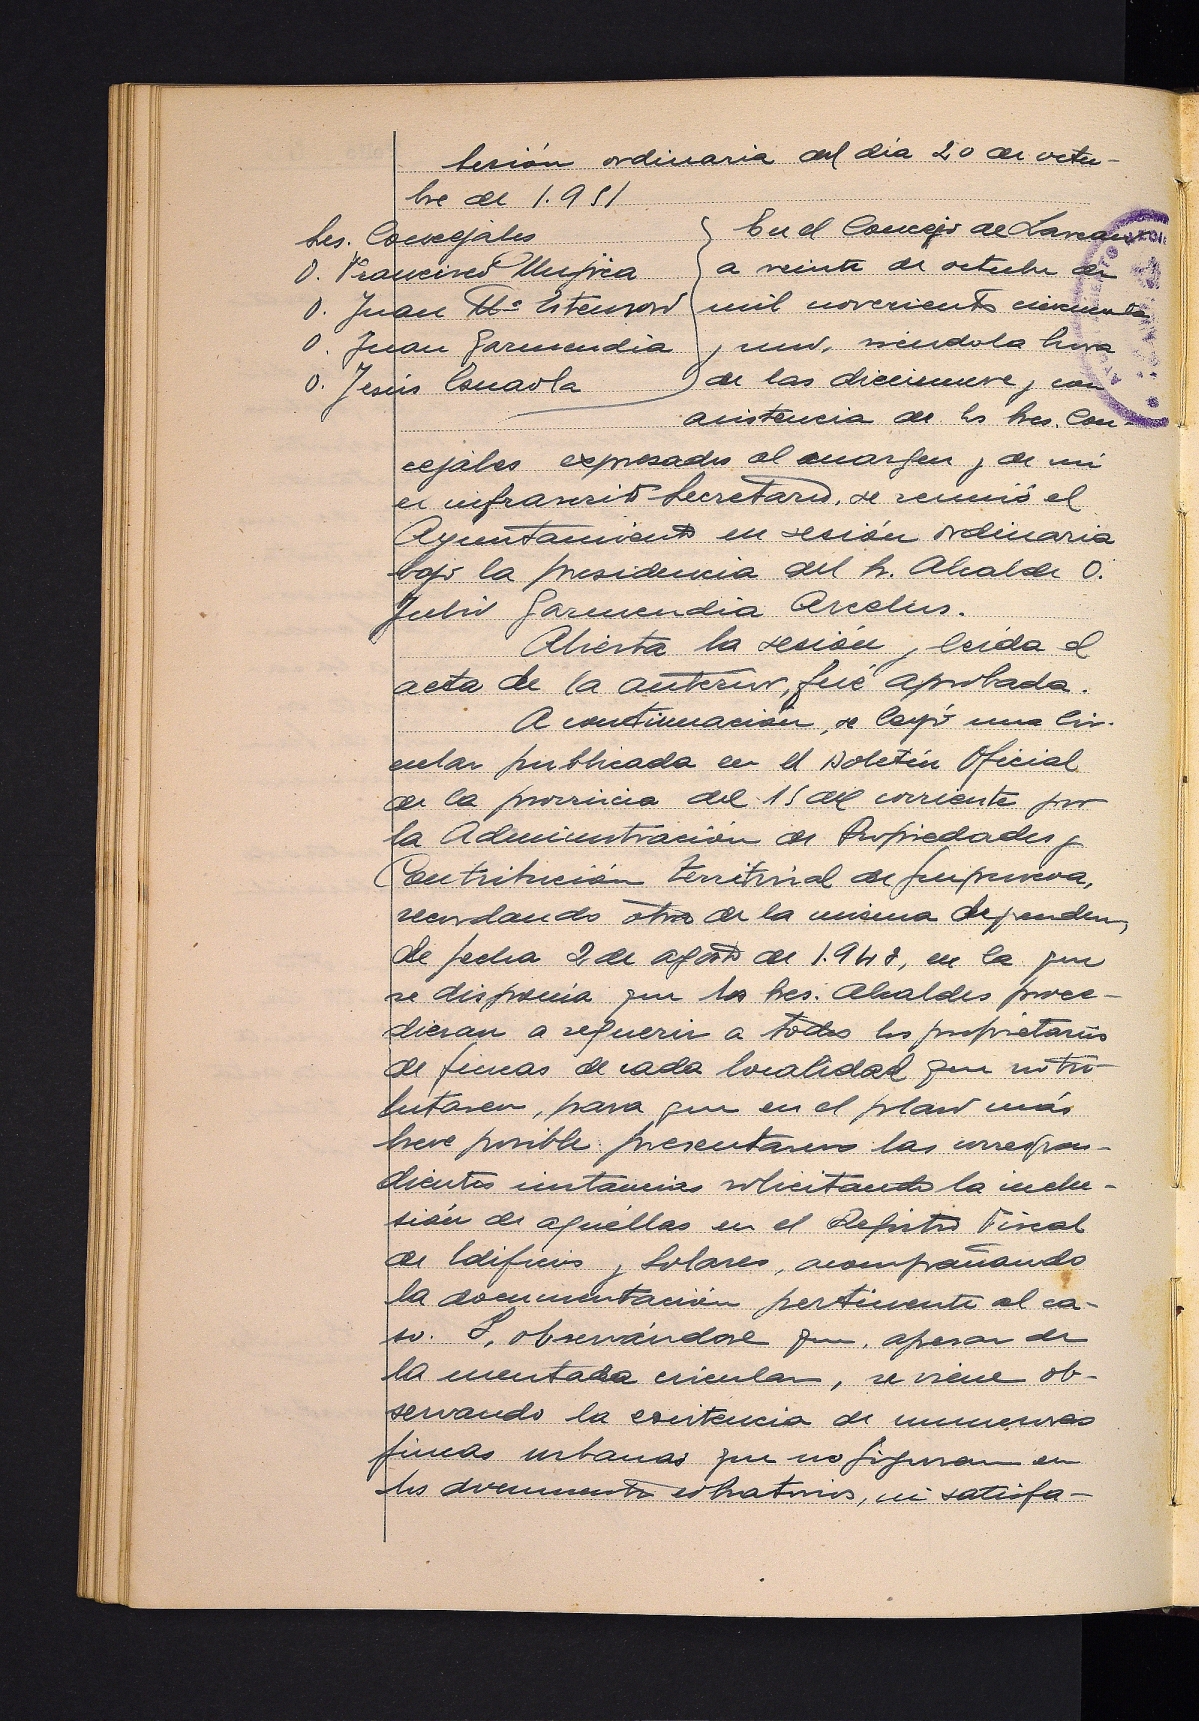 Sesión ordinaria del día 20 de octu-
bre de 1.951
Sres. Concejales
D. Francisco Mujica
D. Juan Mª Estensoro
D. Juan Garmendia
D. Jesús Esnaola
En el Concejo de Lazcano
a veinte de octubre de
mil novecientos cincuenta
y uno, siendo la hora
de las diecinueve, con
asistencia de los Sres. Con-
cejales expresados al margen y de mi
el infrascrito Secretario, se reunió el
Ayuntamiento en sesión ordinaria
bajo la presidencia del Sr. Alcalde D.
Julio Garmendia Arcelus.
Abierta la sesión y leída el
acta de la anterior, fué aprobada.
A continuación, se leyó una Cir-
cular publicada en el Boletín Oficial
de la provincia del 15 del corriente por
la Administración de Propiedades y
Contribución Territorial de Guipuzcoa,
recordando otra de la misma dependen,
de fecha 2 de agosto de 1.948, en la que
se disponía que los Sres. Alcaldes proce-
dieran a requerir a todos los propietarios
de fincas de cada localidad que no tri-
butasen, para que en el plazo más
breve posible presentaran las correspon-
dientes instancias solicitando la inclu-
sión de aquéllas en el Registro Fiscal
de Edificios y Solares, acompañando
la documentación pertinente al ca-
so. Y, observándose que, apesar de
la mentada circular, se viene ob-
servando la existencia de numerosas
fincas urbanas que no figuran en
los documentos cobratorios, ni satisfa-